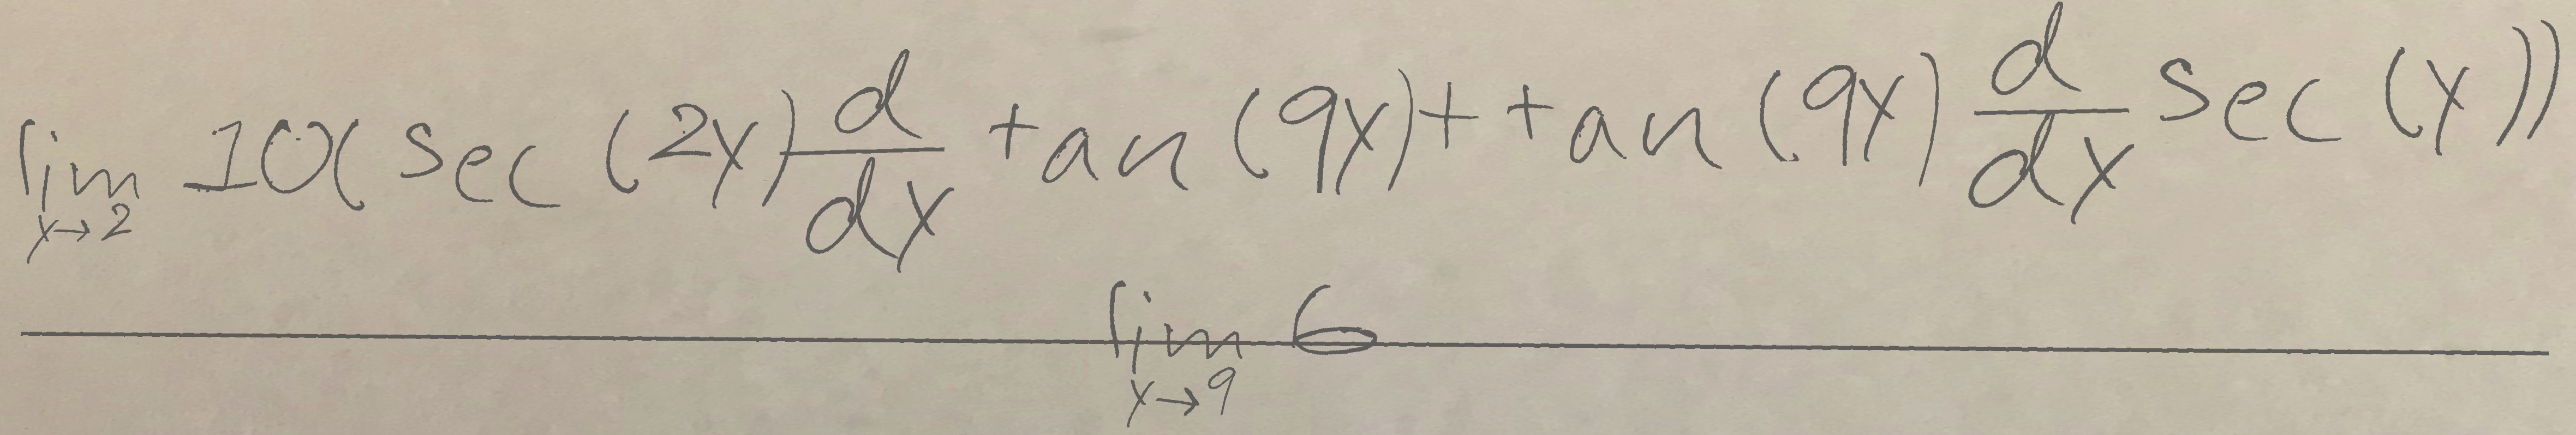 \frac{\lim_{x \to 2} 10(\sec(2x) \frac{d}{dx} \tan(9x) + \tan(9x) \frac{d}{dx} \sec(x))}{\lim_{x \to 9} 6}